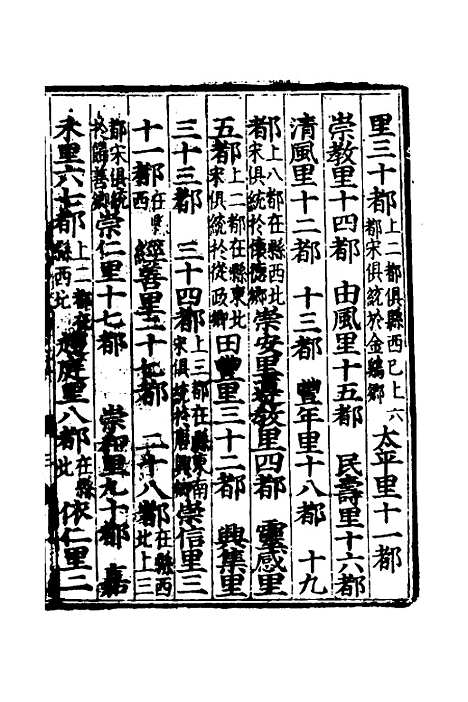 里三十都上二都俱縣西已上六都宋俱統於金鷄鄉太平里十一都
崇教里十四都　由風里十五都　民壽里十六都
清風里十二都　十三都　豐年里十八都　十九
都上八都在縣西北宋俱統於懷德鄉崇安里善教里四都　靈感里
五都上二都在縣東北宋俱統於從政鄉田豐里三十二都　興集里
三十三都　三十四都上三都在縣東南宋俱統於唐興鄉崇信里三
十一都在縣西經善里二十七都　二十八都在縣西北上三
都宋俱統於歸善鄉崇仁里十七都　崇和里九十都　嘉
禾里六七都上二都在縣西北里八都在縣北依仁里二